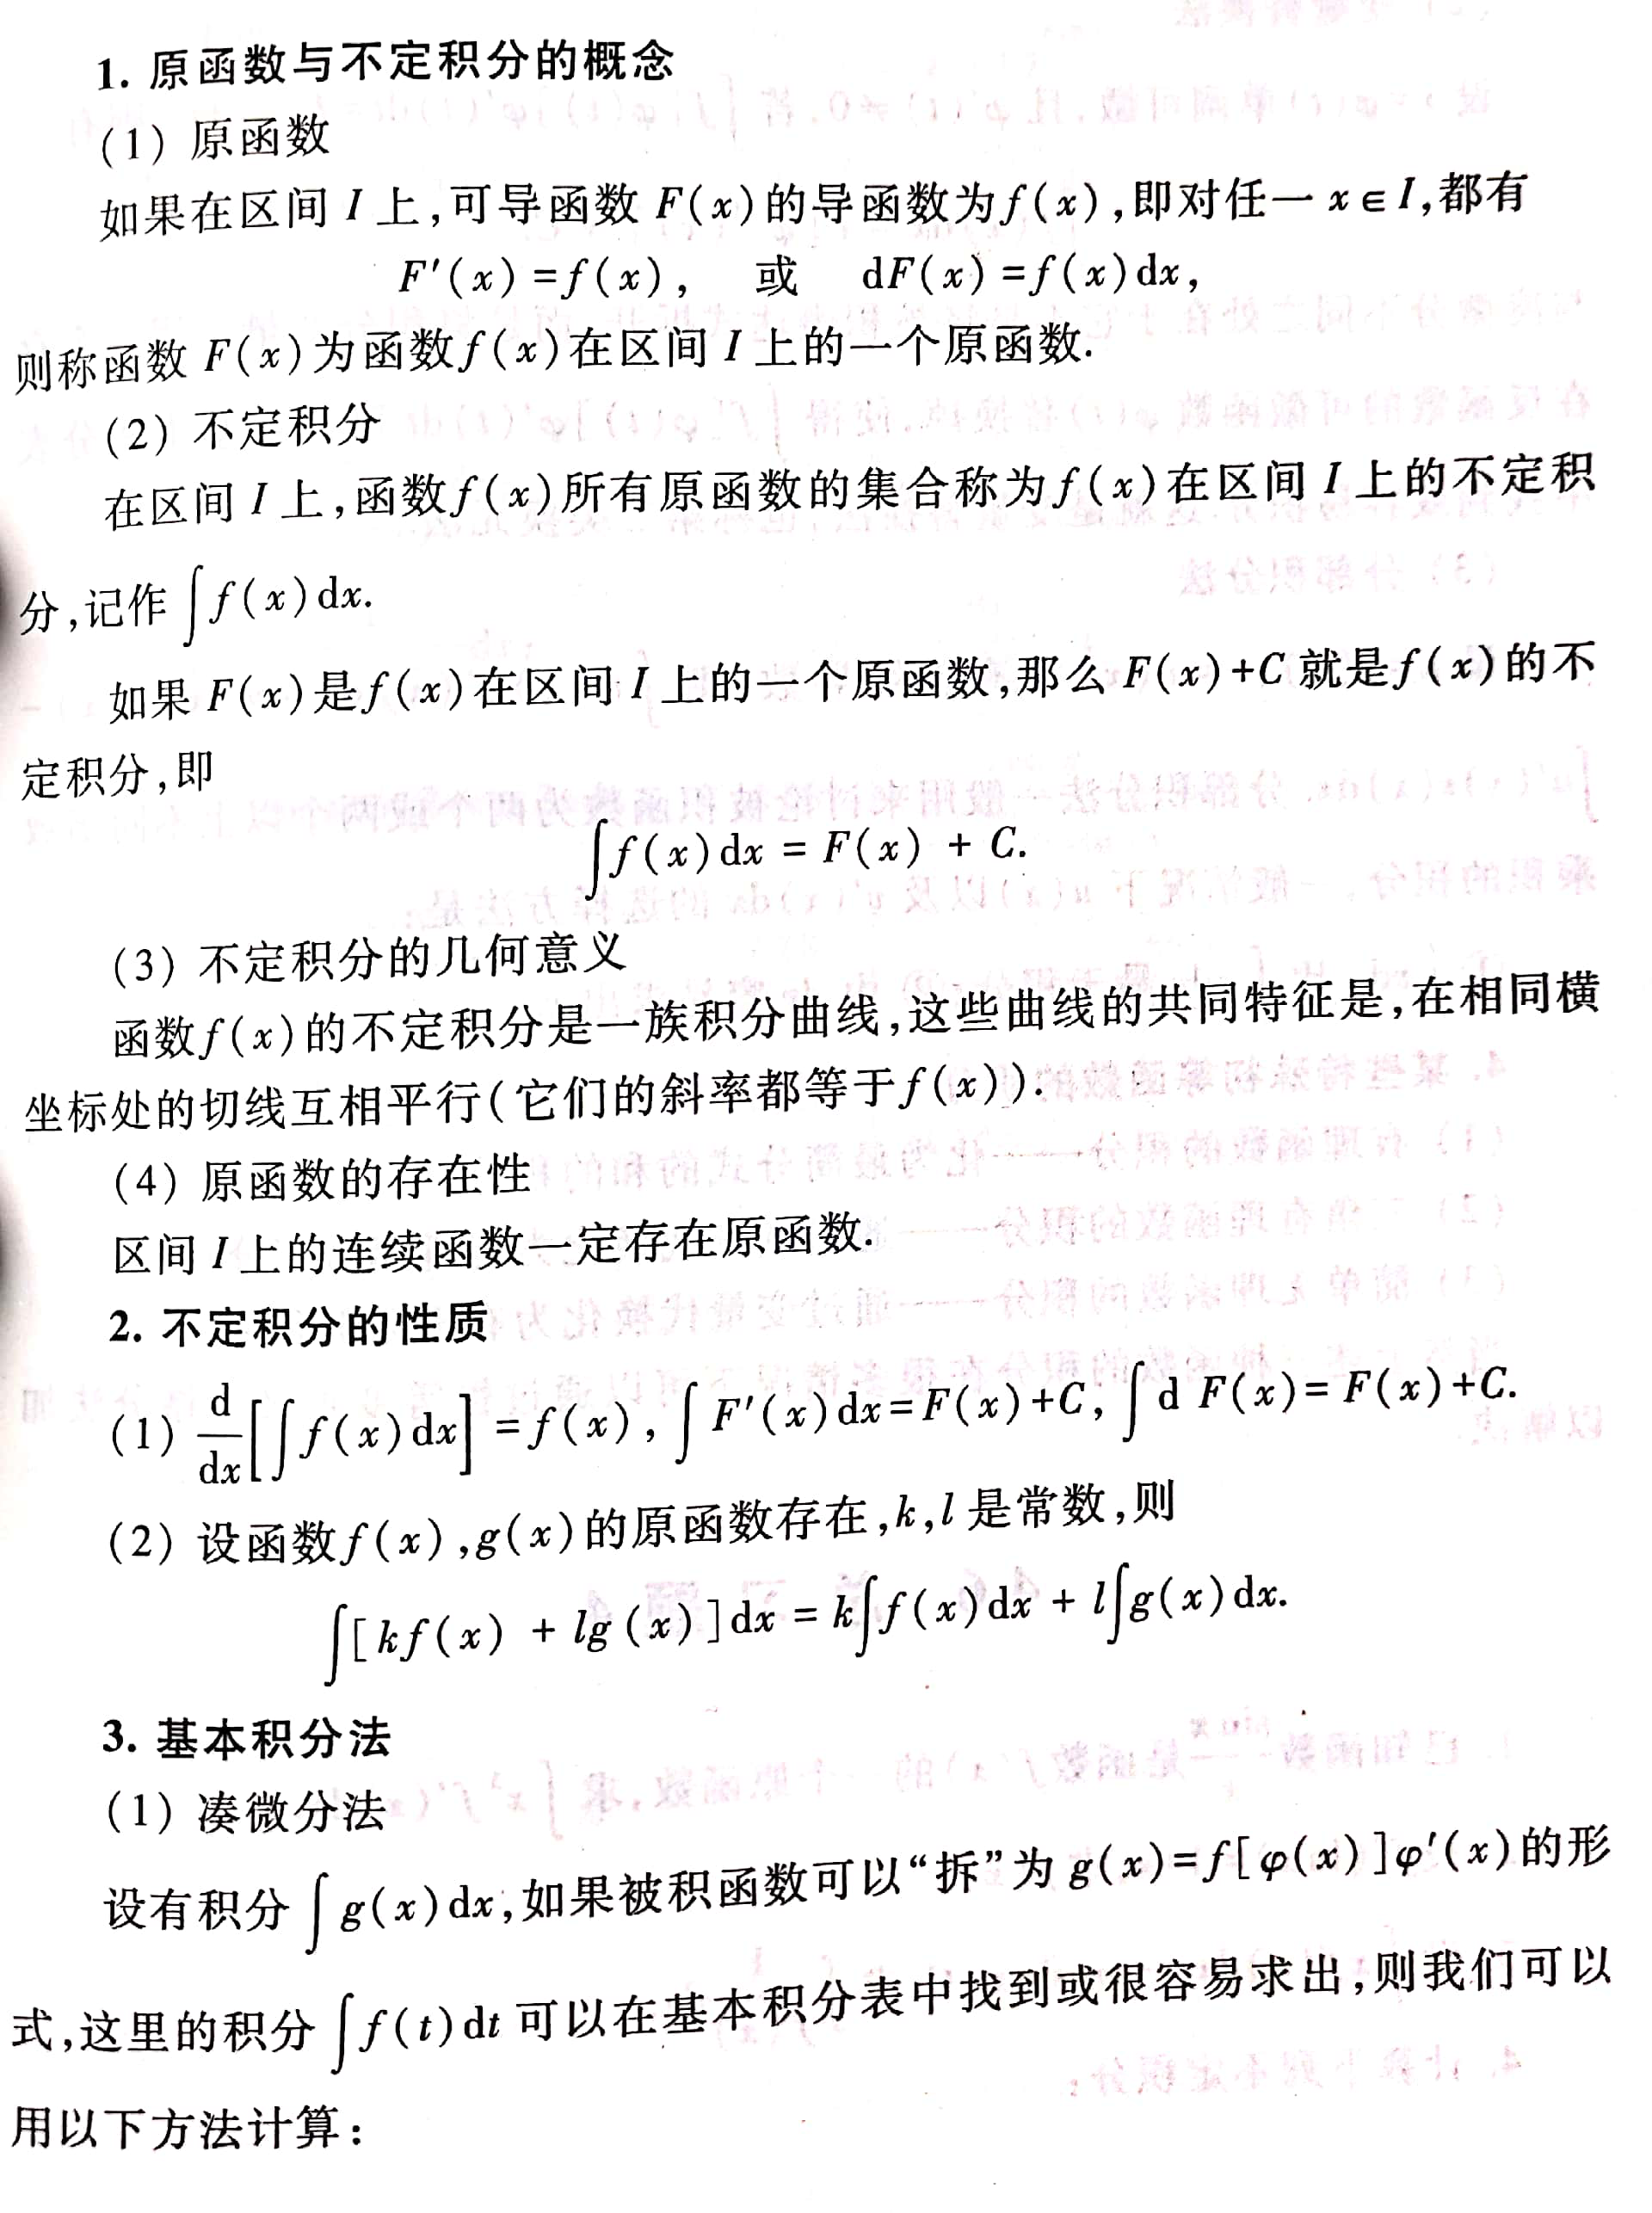 1. 原函数与不定积分的概念
(1) 原函数
如果在区间 I 上,可导函数 F(x)的导函数为f(x),即对任一 x∈I,都有
F′(x)=f(x), 或 dF(x)=f(x)dx,
则称函数 F(x)为函数f(x)在区间 I 上的一个原函数.
(2) 不定积分
在区间 I 上,函数f(x)所有原函数的集合称为f(x)在区间 I 上的不定积
分,记作 ∫f(x)dx.
如果 F(x)是f(x)在区间 I 上的一个原函数,那么 F(x)+C 就是f(x)的不
定积分,即
∫f(x)dx = F(x) + C.
(3) 不定积分的几何意义
函数f(x)的不定积分是一族积分曲线,这些曲线的共同特征是,在相同横
坐标处的切线互相平行(它们的斜率都等于f(x)).
(4) 原函数的存在性
区间 I 上的连续函数一定存在原函数.
2. 不定积分的性质
(1) d/dx[∫f(x)dx]=f(x), ∫F′(x)dx=F(x)+C, ∫d F(x)=F(x)+C.
(2) 设函数f(x),g(x)的原函数存在,k,l 是常数,则
∫[kf(x) + lg(x)]dx = k∫f(x)dx + l∫g(x)dx.
3. 基本积分法
(1) 凑微分法
设有积分 ∫g(x)dx,如果被积函数可以“拆”为 g(x)=f[φ(x)]φ′(x)的形
式,这里的积分 ∫f(t)dt 可以在基本积分表中找到或很容易求出,则我们可以
用以下方法计算: